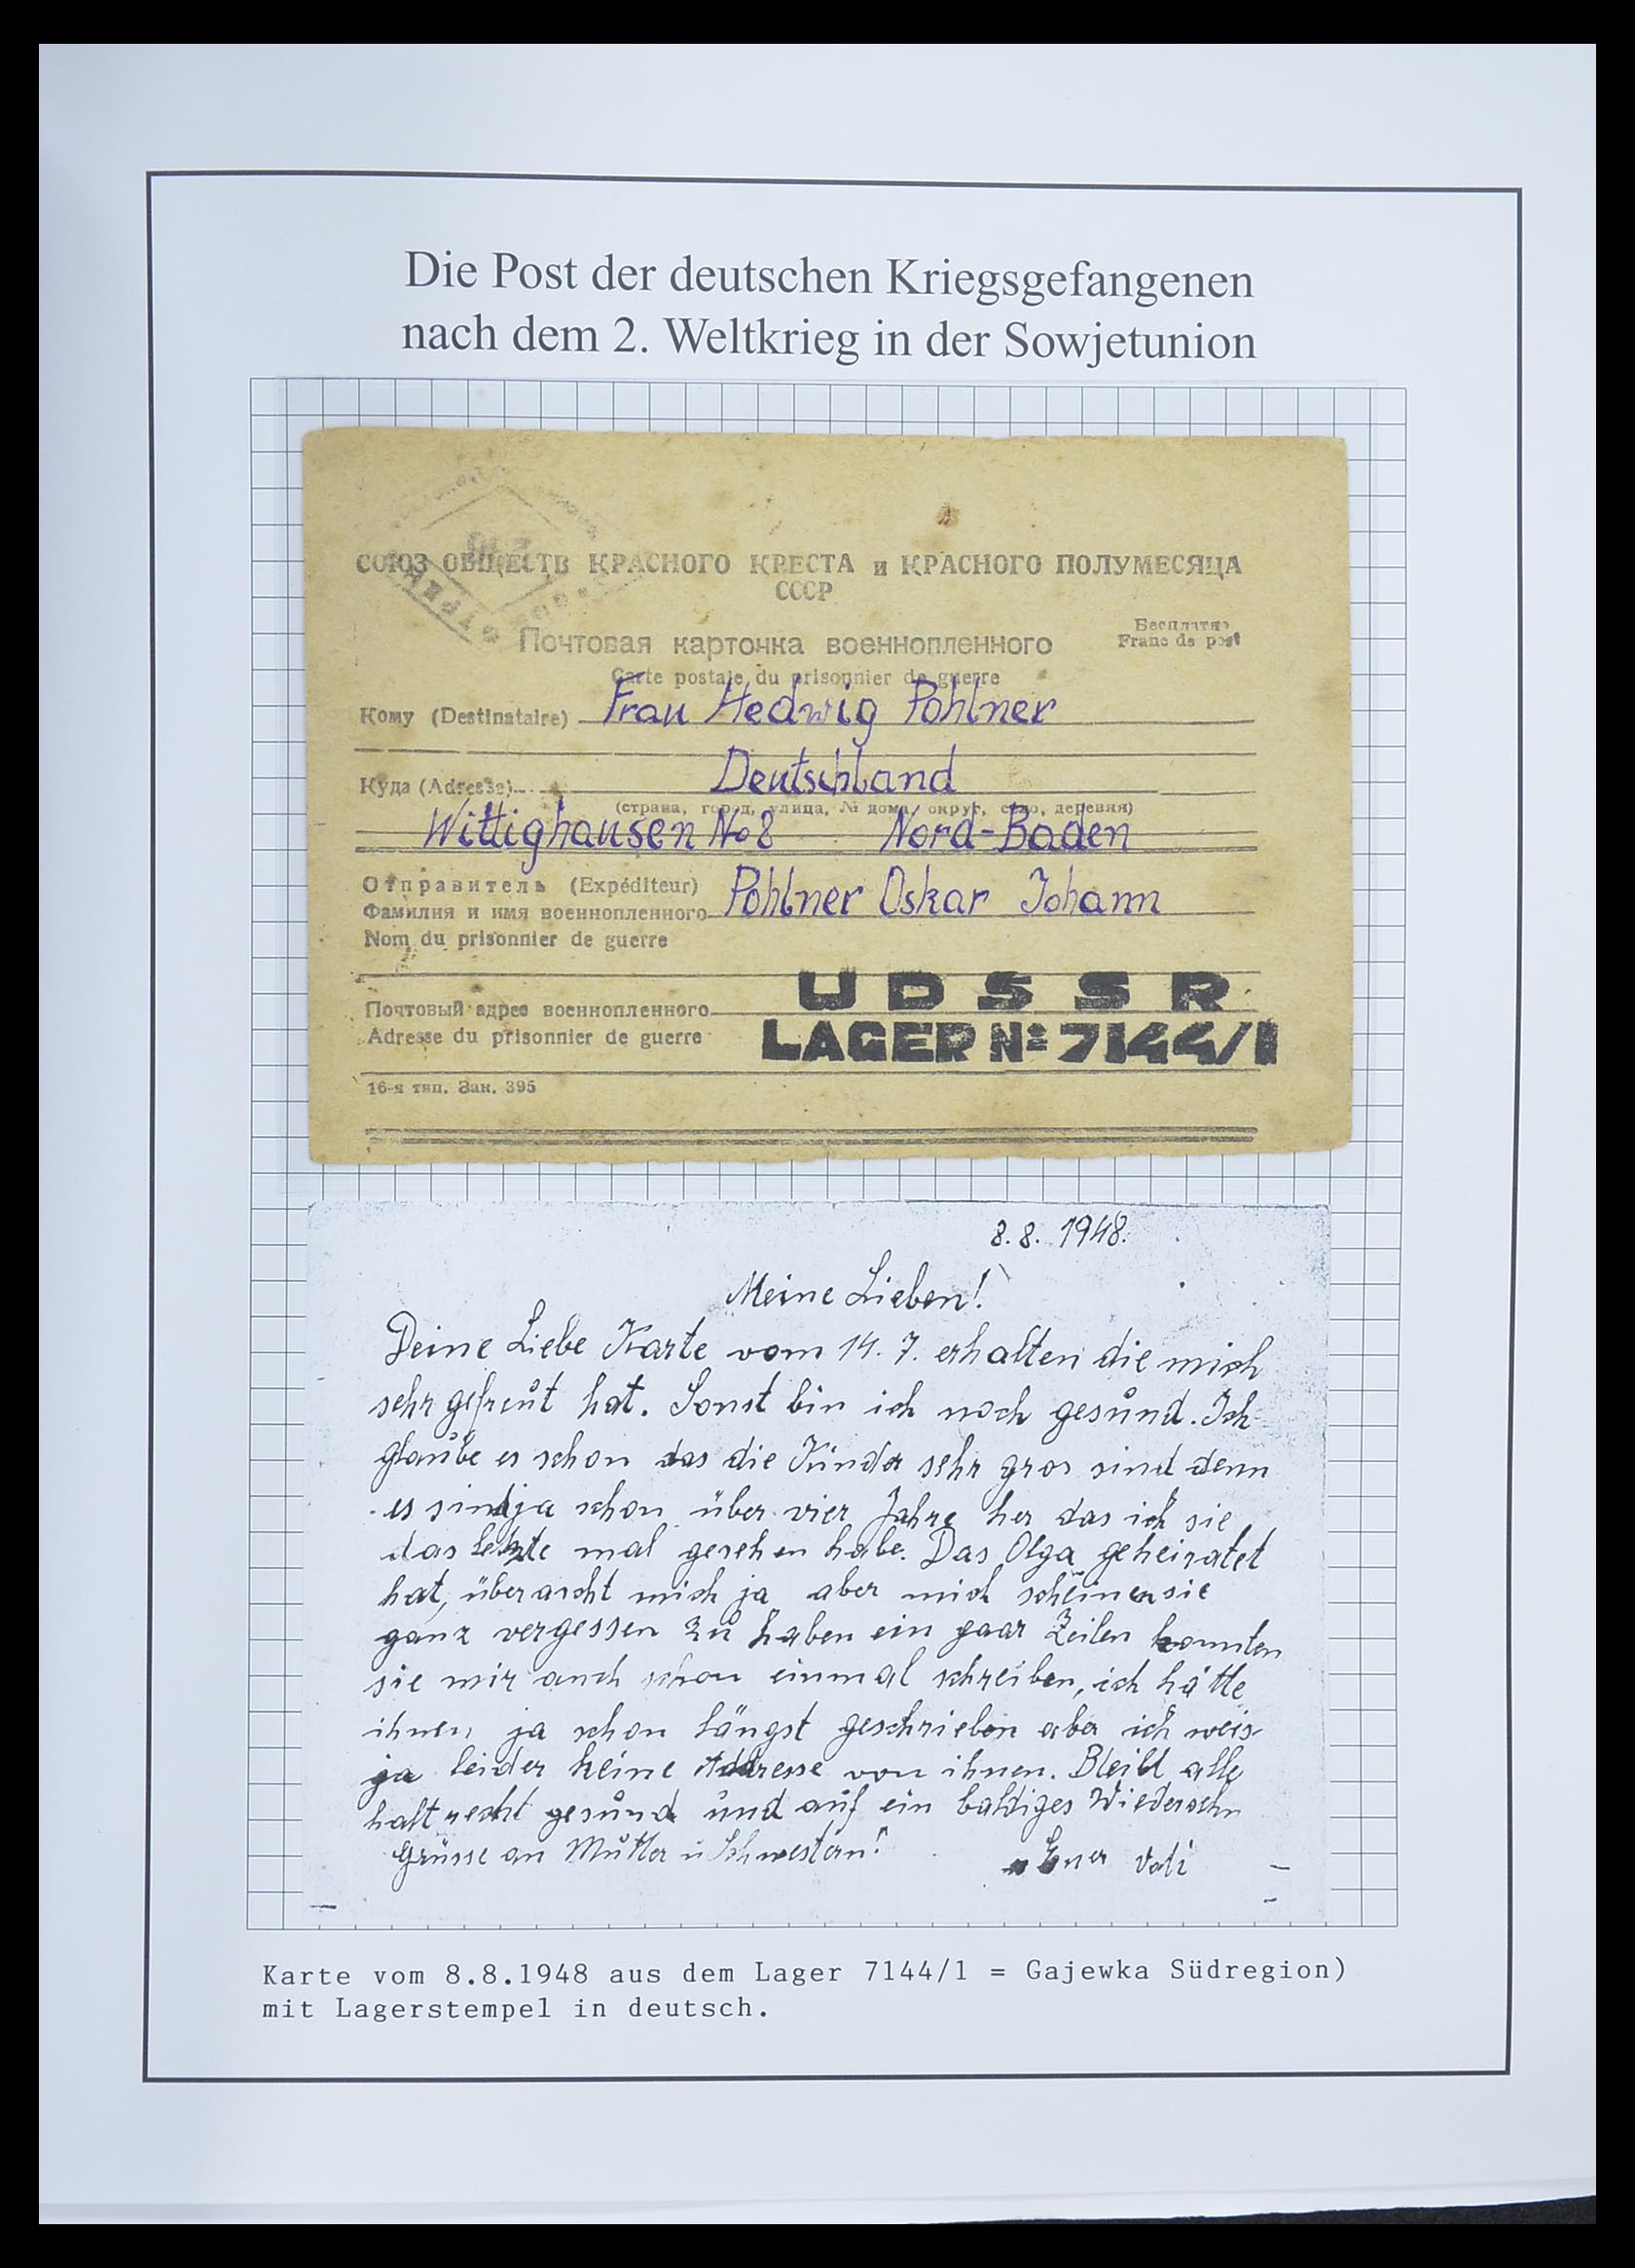 Die Post der deutschen Kriegsgefangenen
nach dem 2. Weltkrieg in der Sowjetunion
СОЮЗ ОБЩЕСТВ КРАСНОГО КРЕСТА и КРАСНОГО ПОЛУМЕСЯЦА
СССР
Почтовая карточка военнопленного
Бесплатно
Franc de port
Carte postale du prisonnier de guerre
Кому (Destinataire) Frau Hedwig Pohlner
Куда (Adresse) Deutschland
(страна, город, улица, № дома, округ, село, деревня)
Wittighausen No 8 Nord-Baden
Отправитель (Expéditeur)
Фамилия и имя военнопленного Pohlner Oskar Johann
Nom du prisonnier de guerre
UDSSR
Почтовый адрес военнопленного
LAGER №7144/1
Adresse du prisonnier de guerre
16-я тип. Зак. 395
8. 8. 1948.
Meine Lieben!
Deine Liebe Karte vom 14. 7. erhalten die mich
sehr gefreut hat. Sonst bin ich noch gesund. Ich
glaube es schon das die Kinder sehr gros sind denn
es sind ja schon über vier Jahre her das ich sie
das letzte mal gesehen habe. Das Olga geheiratet
hat, überascht mich ja aber mich scheinen sie
ganz vergessen zu haben ein paar Zeilen konnten
sie mir auch schon einmal schreiben, ich hätte
ihnen ja schon längst geschrieben aber ich weis
ja leider keine Addresse von ihnen. Bleibt alle
halt recht gesund und auf ein baldiges Wiedersehn
Grüsse an Mutter u Schwestern! Euer Vati
Karte vom 8.8.1948 aus dem Lager 7144/1 = Gajewka Südregion)
mit Lagerstempel in deutsch.